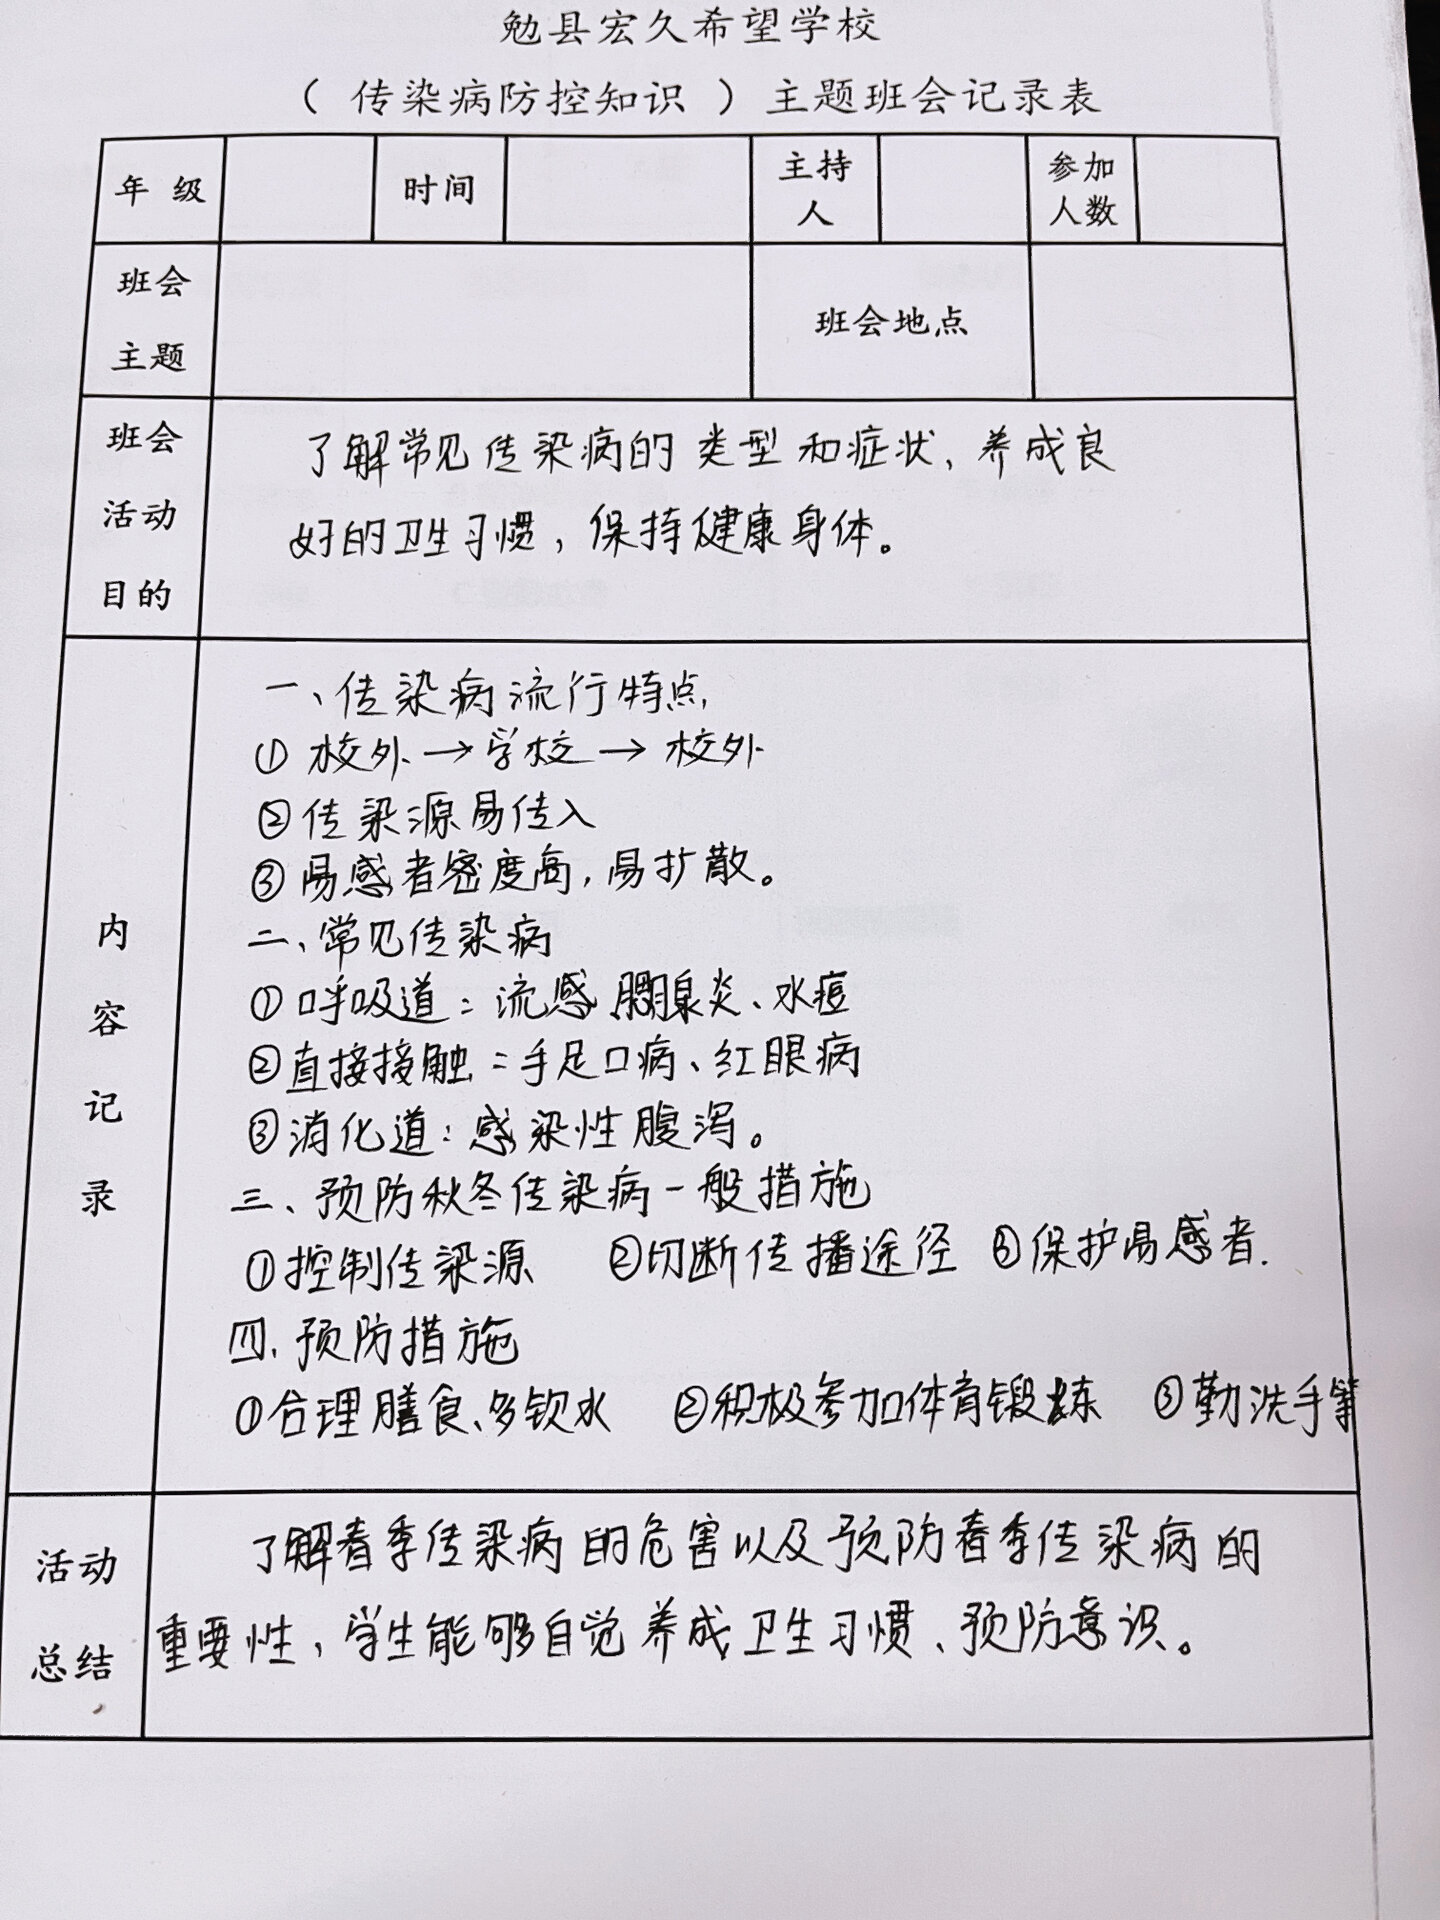 勉县宏久希望学校
（ 传染病防控知识 ）主题班会记录表
年 级 时间 主持人 参加人数
班会主题 班会地点
班会活动目的
了解常见传染病的类型和症状、养成良
好的卫生习惯，保持健康身体。
内容记录
一、传染病流行特点
① 校外→学校→校外
②传染源易传入
③易感者密度高，易扩散。
二、常见传染病
①呼吸道：流感、腮腺炎、水痘
②直接接触：手足口病、红眼病
③消化道：感染性腹泻。
三、预防秋冬传染病一般措施
①控制传染源 ②切断传播途径 ③保护易感者.
四、预防措施
①合理膳食、多饮水 ②积极参加体育锻炼 ③勤洗手等
活动总结
了解春季传染病的危害以及预防春季传染病的
重要性，学生能够自觉养成卫生习惯、预防意识。